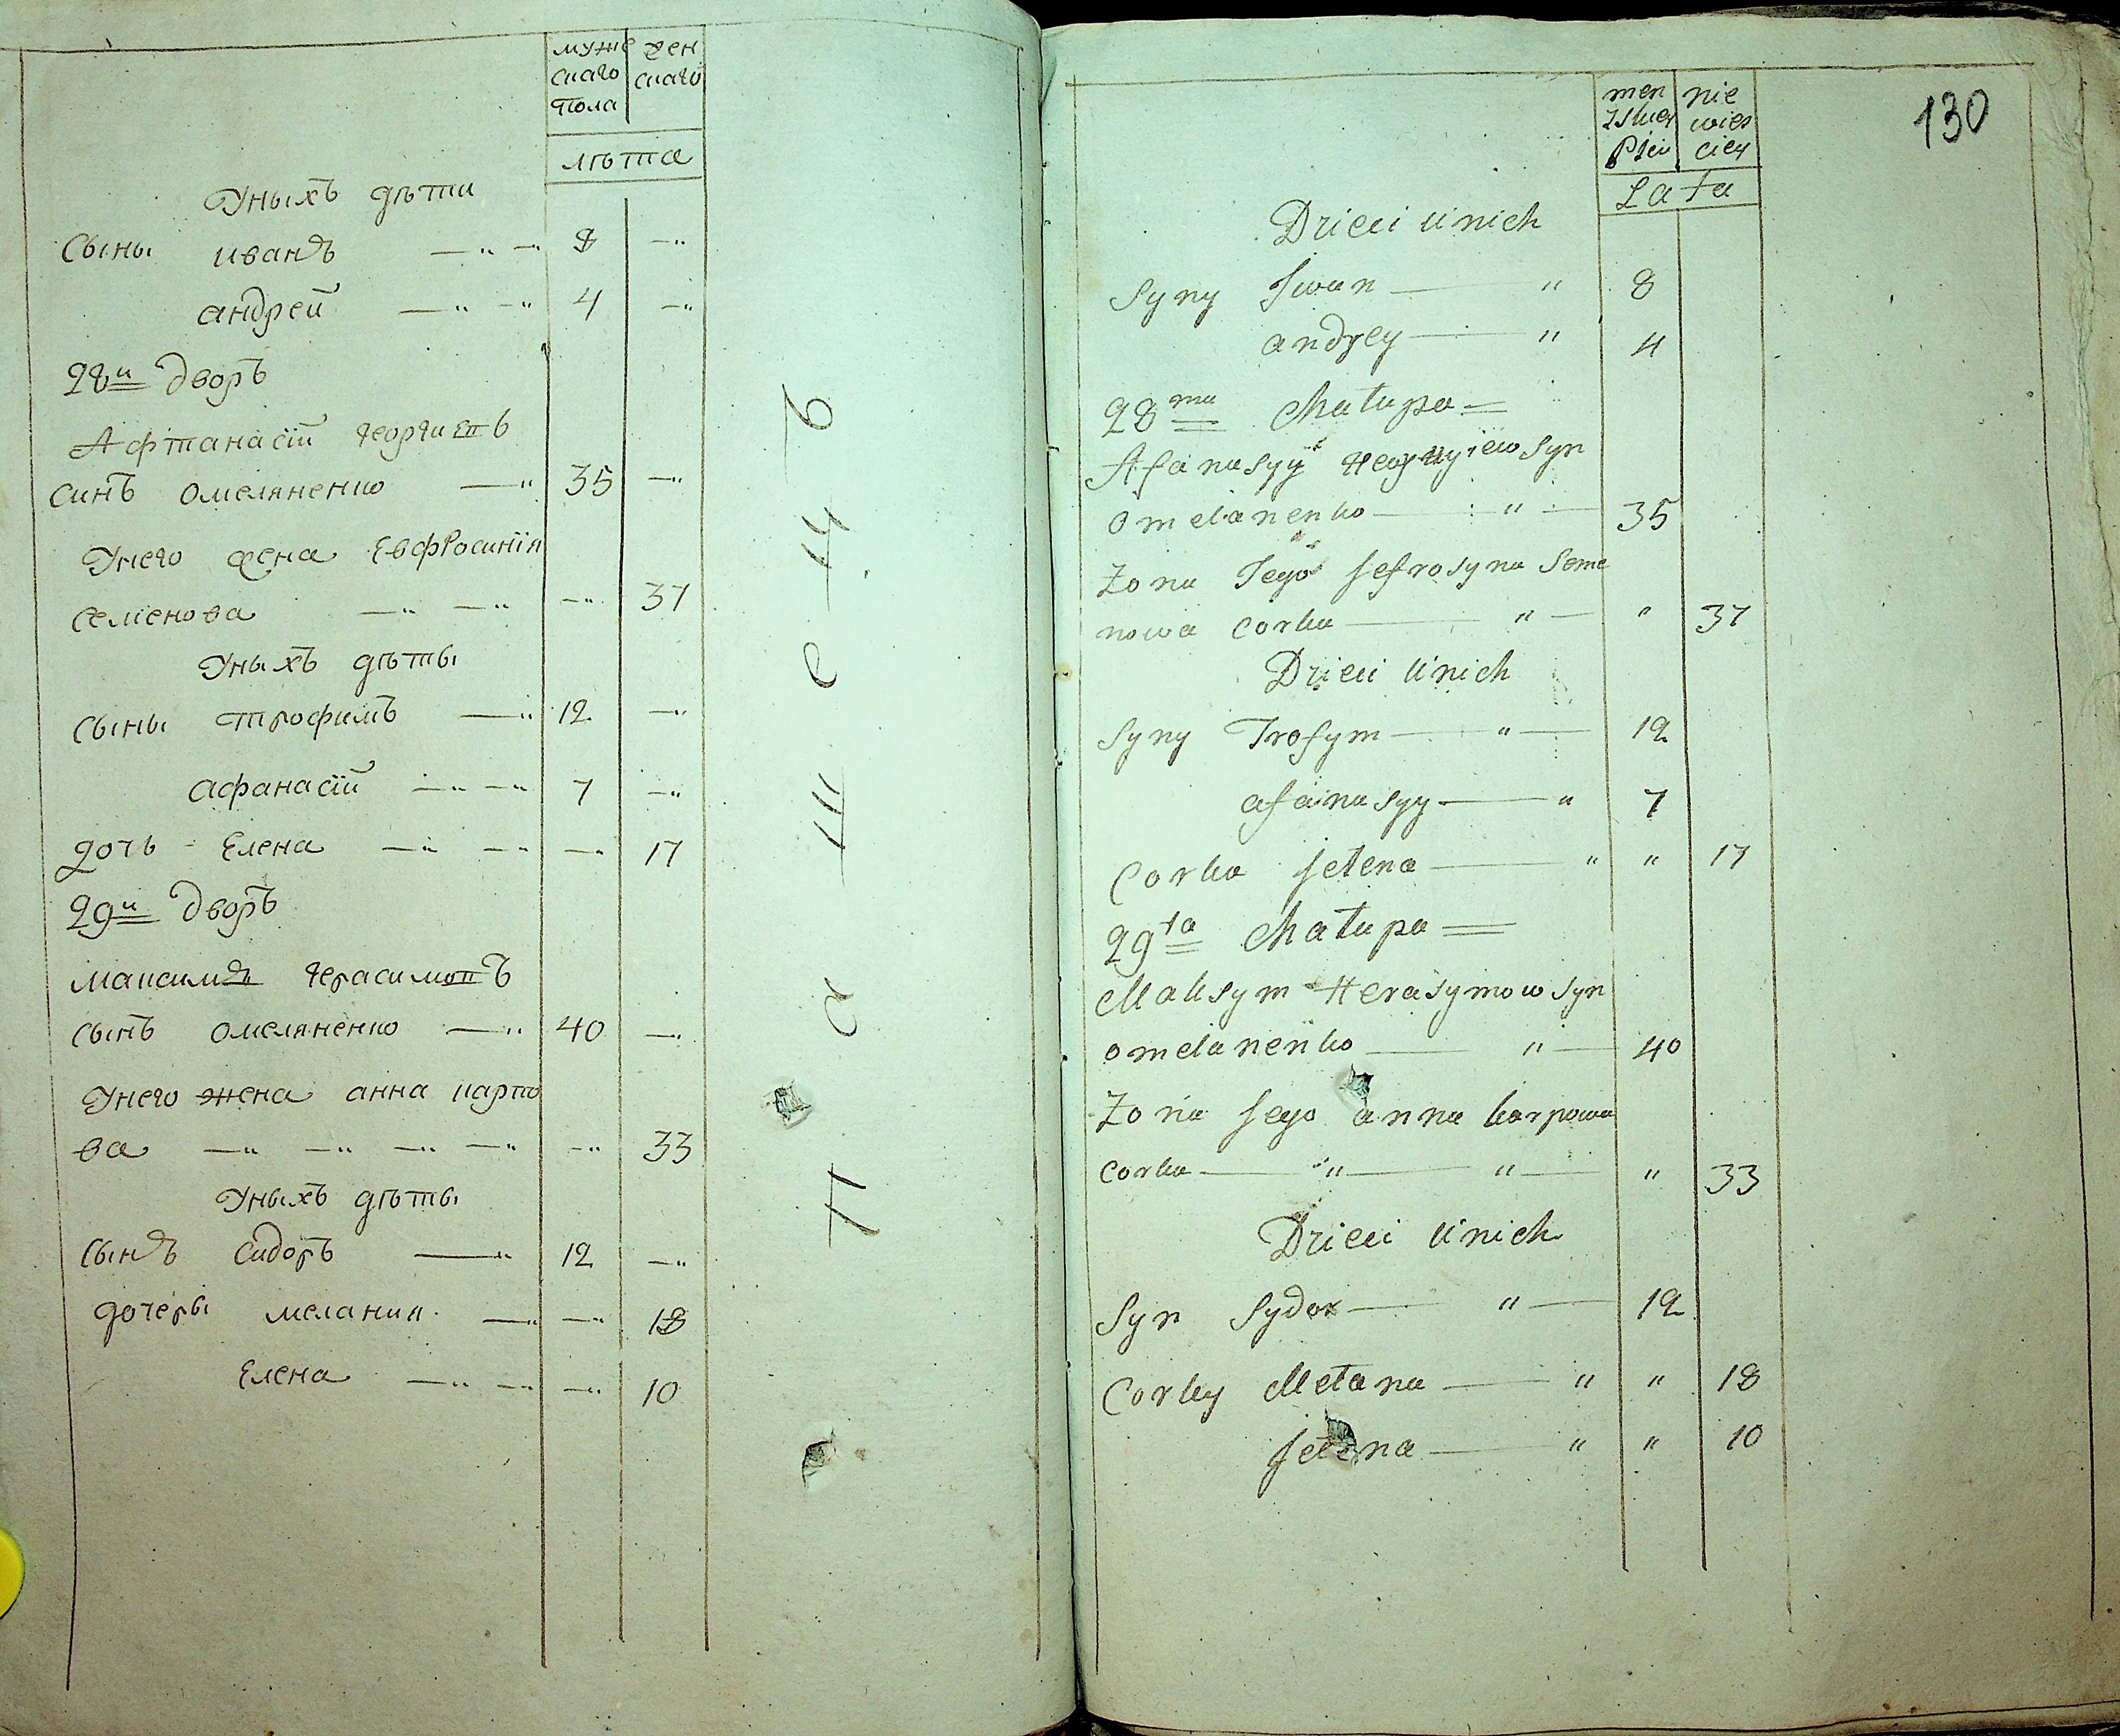 муже жен
скаго скаго
пола
лѣта
Уныхъ дѣти
Сыны иванъ —„ —„ 8 —„
андрей —„ —„ 4 —„
28й дворъ
Афтанасiй георгиевъ
синъ омеляненко —„ 35 —„
Унего жена Евфросинiя
семiенова —„ —„ —„ 37
Уныхъ дѣты
Сыны трофимъ —„ 12 —„
афанасiй —„ —„ 7 —„
дочь Елена —„ —„ —„ 17
29й дворъ
максимъ герасимовъ
сынъ омеляненко —„ 40 —„
Унего жена анна карпо
ва —„ —„ —„ —„ —„ 33
Уныхъ дѣты
Сынъ Сидоръ —„ 12 —„
дочеры мелания —„ —„ 18
Елена —„ —„ —„ 10
130
men nie
zskiey wies
Płci ciey
Lata
Dzieci unich
Syny Jwan — „ 8
andrey — „ 4
28ma Chałupa =
Afanasyy Heorhyiew Syn
omelanenko — „ — 35
Zona Jego Jefrosyna Seme
nowa corka — „ — „ 37
Dzieci unich
Syny Trofym — „ — 12
afanasyy — „ 7
Corka Jełena — „ „ 17
29ta Chałupa =
Maksym Herasymow Syn
omelanenko — „ — 40
Zona Jego anna karpowa
corka — „ — „ — „ 33
Dzieci unich
Syn Sydor — „ — 12
Corky Mełana — „ „ 18
Jełena — „ „ 10